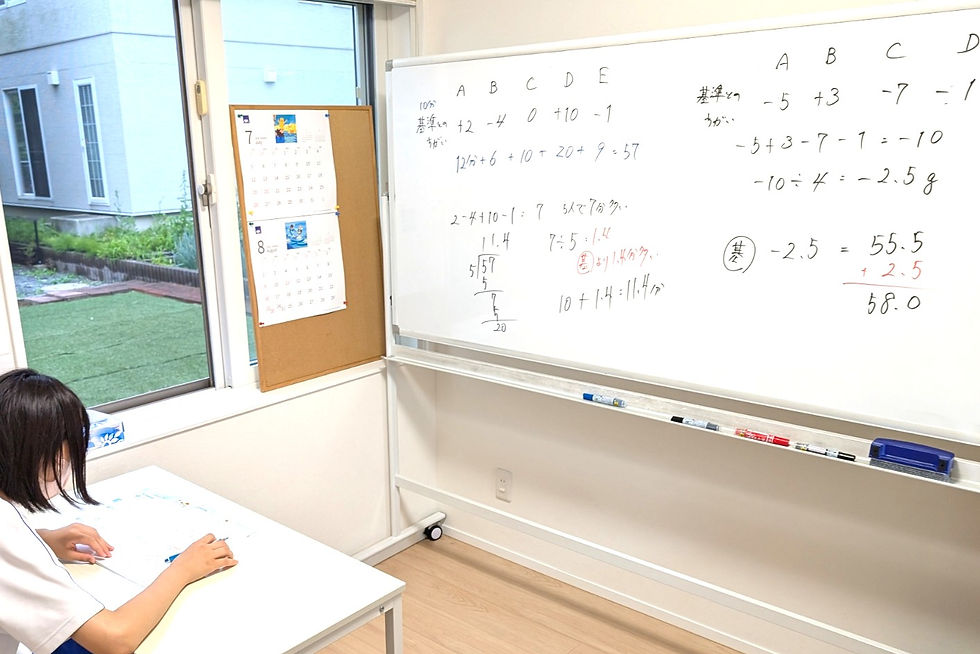 A B C D E
10分
基準との +2 -4 0 +10 -1
ちがい
12分+6 +10+ 20+ 9 =57
2-4+10-1=7 5人で7分多い
11.4 7÷5=1.4
5 57 基より1.4分多い
5
7 10+1.4=11.4分
5
20
A B C D
基準との -5 +3 -7 -1
ちがい
-5+3-7-1=-10
-10÷4=-2.5g
基 -2.5 = 55.5
+2.5
58.0
7
8
August